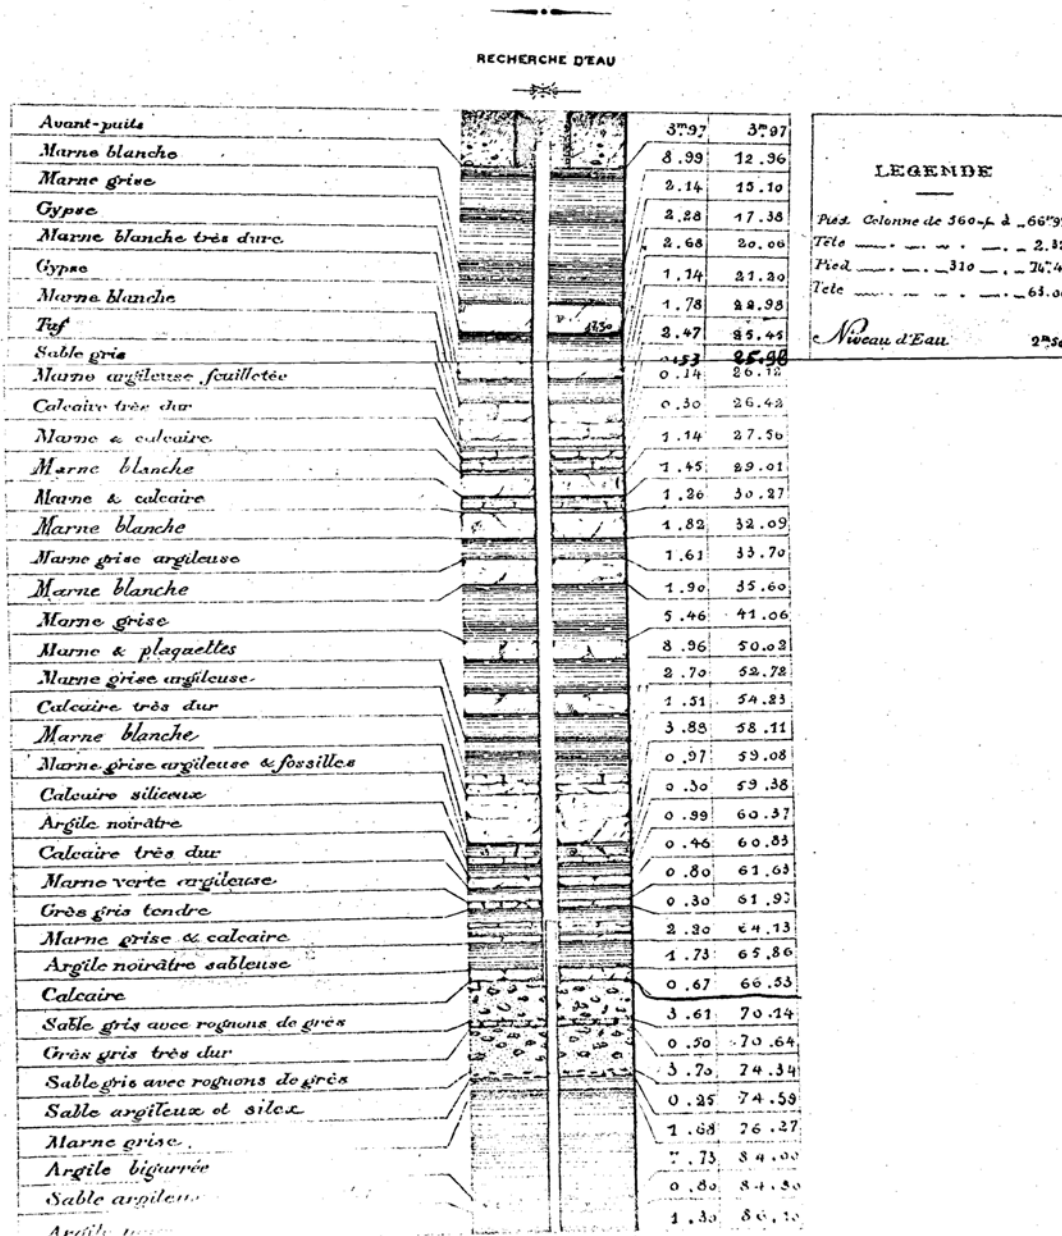 RECHERCHE D'EAU
Avant-puits 3m97 3m97
Marne blanche 8.99 12.96
Marne grise 2.14 15.10
Gypse 2.28 17.38
Marne blanche très dure 2.68 20.06
Gypse 1.14 21.20
Marne blanche 1.78 22.98
Tuf 2.47 25.45
Sable gris 0.53 25.98
Marne argileuse feuilletée 0.14 26.12
Calcaire très dur 0.30 26.42
Marne & calcaire 1.14 27.56
Marne blanche 1.45 29.01
Marne & calcaire 1.26 30.27
Marne blanche 1.82 32.09
Marne grise argileuse 1.61 33.70
Marne blanche 1.90 35.60
Marne grise 5.46 41.06
Marne & plaquettes 8.96 50.02
Marne grise argileuse 2.70 52.72
Calcaire très dur 1.51 54.23
Marne blanche 3.88 58.11
Marne grise argileuse & fossilles 0.97 59.08
Calcaire siliceux 0.30 59.38
Argile noirâtre 0.99 60.37
Calcaire très dur 0.46 60.83
Marne verte argileuse 0.80 61.63
Grès gris tendre 0.30 61.93
Marne grise & calcaire 2.20 64.13
Argile noirâtre sableuse 1.73 65.86
Calcaire 0.67 66.53
Sable gris avec rognons de grès 3.61 70.14
Grès gris très dur 0.50 70.64
Sable gris avec rognons de grès 3.70 74.34
Sable argileux et silex 0.25 74.59
Marne grise 1.68 76.27
Argile bigarrée .73 84.00
Sable argileux 0.80 84.80
Argile 1.30 86.10
LEGENDE
Pied Colonne de 360 à 66m9
Tête 2.3
Pied 310 74m4
Tete 63.0
Niveau d'Eau 2m50